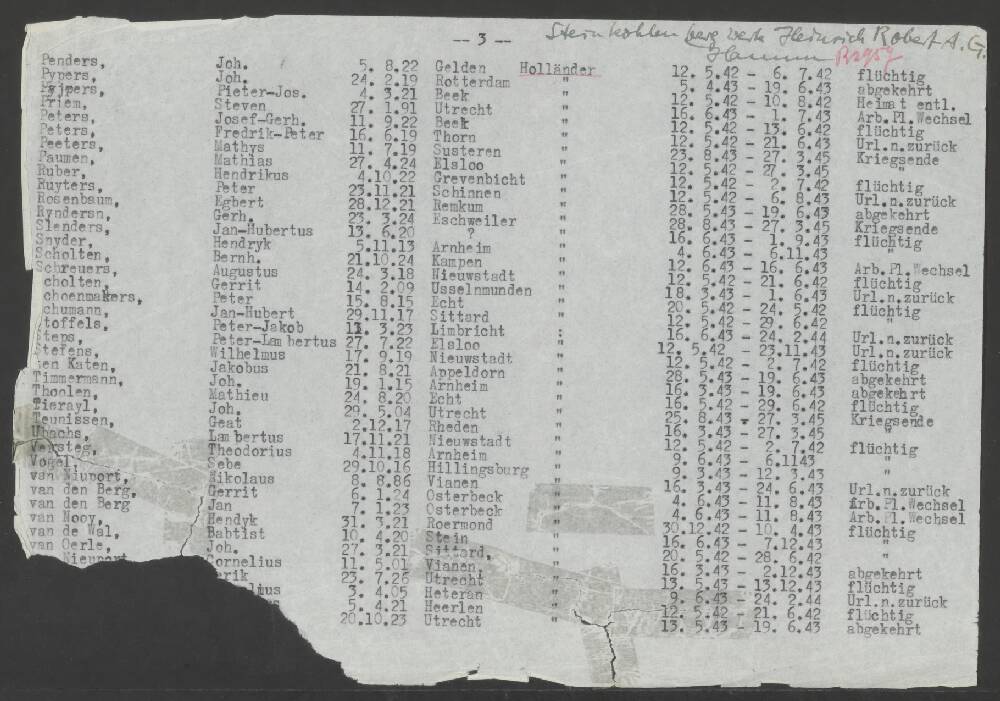 -- 3 -- Steinkohlenbergwerk Heinrich Robert A.G.
Hamm
Penders, Joh. 5. 8.22 Gelden Holländer 12. 5.42 - 6. 7.42 flüchtig
Pypers, Joh. 24. 2.19 Rotterdam " 5. 4.43 - 19. 6.43 abgekehrt
Pyjpers, Pieter-Jos. 4. 3.21 Beek " 12. 5.42 - 10. 8.42 Heimat entl.
Priem, Steven 27. 1.91 Utrecht " 16. 6.43 - 1. 7.43 Arb.Pl.Wechsel
Peters, Josef-Gerh. 11. 9.22 Beek " 12. 5.42 - 13. 6.42 flüchtig
Peters, Fredrik-Peter 16. 6.19 Thorn " 12. 5.42 - 21. 6.43 Url.n.zurück
Peeters, Mathys 11. 7.19 Susteren " 23. 8.43 - 27. 3.45 Kriegsende
Paumen, Mathias 27. 4.24 Elsloo " 12. 5.42 - 27. 3.45 "
Ruber, Hendrikus 4.10.22 Grevenbicht " 12. 5.42 - 2. 7.42 flüchtig
Ruyters, Peter 23.11.21 Schinnen " 12. 5.42 - 6. 8.43 Url.n.zurück
Rosenbaum, Egbert 28.12.21 Remkum " 28. 5.43 - 19. 6.43 abgekehrt
Ryndersn, Gerh. 23. 3.24 Eschweiler " 28. 8.43 - 27. 3.45 Kriegsende
Slenders, Jan-Hubertus 13. 6.20 ? " 16. 6.43 - 1. 9.43 flüchtig
Snyder, Hendryk 5.11.13 Arnheim " 4. 6.43 - 6.11.43 "
Scholten, Bernh. 21.10.24 Kampen " 12. 6.43 - 16. 6.43 Arb.Pl.Wechsel
Schreuers, Augustus 24. 3.18 Nieuwstadt " 12. 5.42 - 21. 6.42 flüchtig
cholten, Gerrit 14. 2.09 Usselnmunden " 18. 3.43 - 1. 6.43 Url.n.zurück
choenmakers, Peter 15. 8.15 Echt " 20. 5.42 - 24. 5.42 flüchtig
chumann, Jan-Hubert 29.11.17 Sittard " 12. 5.42 - 29. 6.42
toffels, Peter-Jakob 12. 3.23 Limbricht : 16. 6.43 - 24. 2.44 Url.n.zurück
teps, Peter-Lambertus 27. 7.22 Elsloo " 12. 5.42 - 23.11.43 Url.n.zurück
tefens, Wilhelmus 17. 9.19 Nieuwstadt " 12. 5.42 - 2. 7.42 flüchtig
ten Katen, Jakobus 21. 8.21 Appeldorn " 28. 5.43 - 19. 6.43 abgekehrt
Timmermann, Joh. 19. 1.15 Arnheim " 16. 3.43 - 19. 6.43 abgekehrt
Thoolen, Mathieu 24. 8.20 Echt " 16. 5.42 - 29. 6.42 flüchtig
Tierayl, Joh. 29. 5.04 Utrecht " 25. 8.43 - 27. 3.45 Kriegsende
Teunissen, Geat 2.12.17 Rheden " 16. 3.43 - 27. 3.45 "
Ubachs, Lambertus 17.11.21 Nieuwstadt " 12. 5.42 - 2. 7.42 flüchtig
Versteg, Theodorius 4.11.18 Arnheim " 9. 6.43 - 6.1143 "
Vogel, Sebe 29.10.16 Hillingsburg " 9. 3.43 - 12. 3.43 "
van Niuport, Nikolaus 8. 8.86 Vianen " 16. 3.43 - 24. 6.43 Url.n.zurück
van den Berg, Gerrit 6. 1.24 Osterbeck " 4. 6.43 - 11. 8.43 Arb.Pl.Wechsel
van den Berg Jan 7. 1.23 Osterbeck " 4. 6.43 - 11. 8.43 Arb.Pl.Wechsel
van Nooy, Hendyk 31. 3.21 Roermond " 30.12.42 - 10. 4.43 flüchtig
van de Wal, Babtist 10. 4.20 Stein " 16. 6.43 - 7.12.43 "
van Oerle, Joh. 27. 3.21 Sittard, " 20. 5.42 - 28. 6.42 "
Nieuport Cornelius 11. 5.01 Vianen, " 16. 3.43 - 2.12.43 abgekehrt
erik 23. 7.26 Utrecht " 13. 5.43 - 13.12.43 flüchtig
elius 3. 4.05 Heteran " 9. 6.43 - 24. 2.44 Url.n.zurück
5. 4.21 Heerlen " 12. 5.42 - 21. 6.42 flüchtig
20.10.23 Utrecht " 13. 5.43 - 19. 6.43 abgekehrt